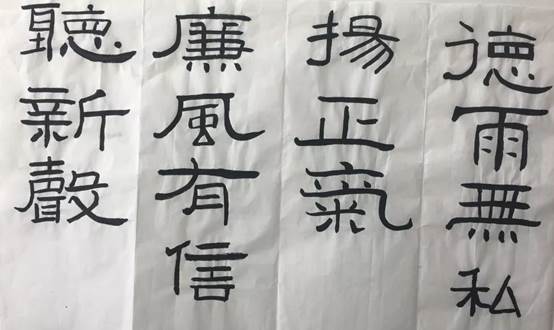 德雨無私
揚正氣
廉風有信
聽新聲